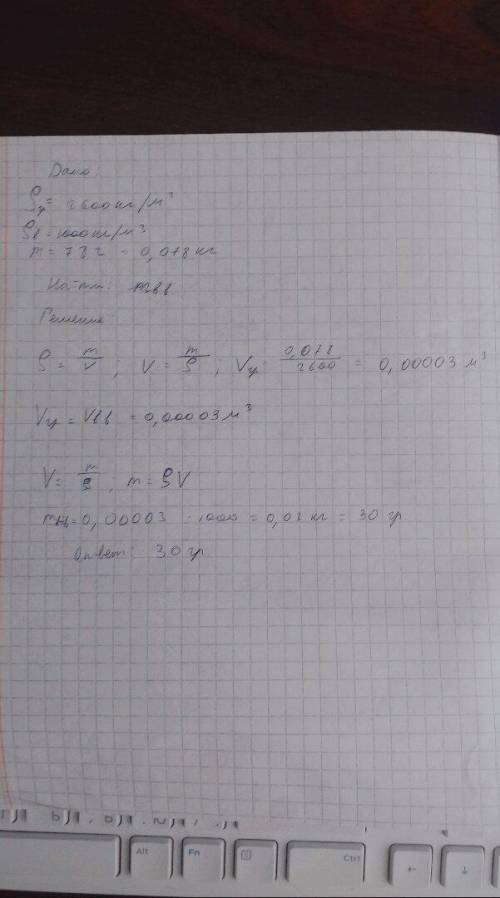 Дано:
ρ = 2600 кг/м³
ρв = 1000 кг/м³
m = 78 г = 0,078 кг
Найти: mвв
Решение
ρ = m/V ; V = m/ρ ; V 0,078/2600 = 0,00003 м³
V = Vвв = 0,00003 м³
V = m/ρ ; m = ρV
0,00003 · 1000 = 0,03 кг = 30 гр
Ответ: 30 гр
Alt Fn Ctrl ← ↓